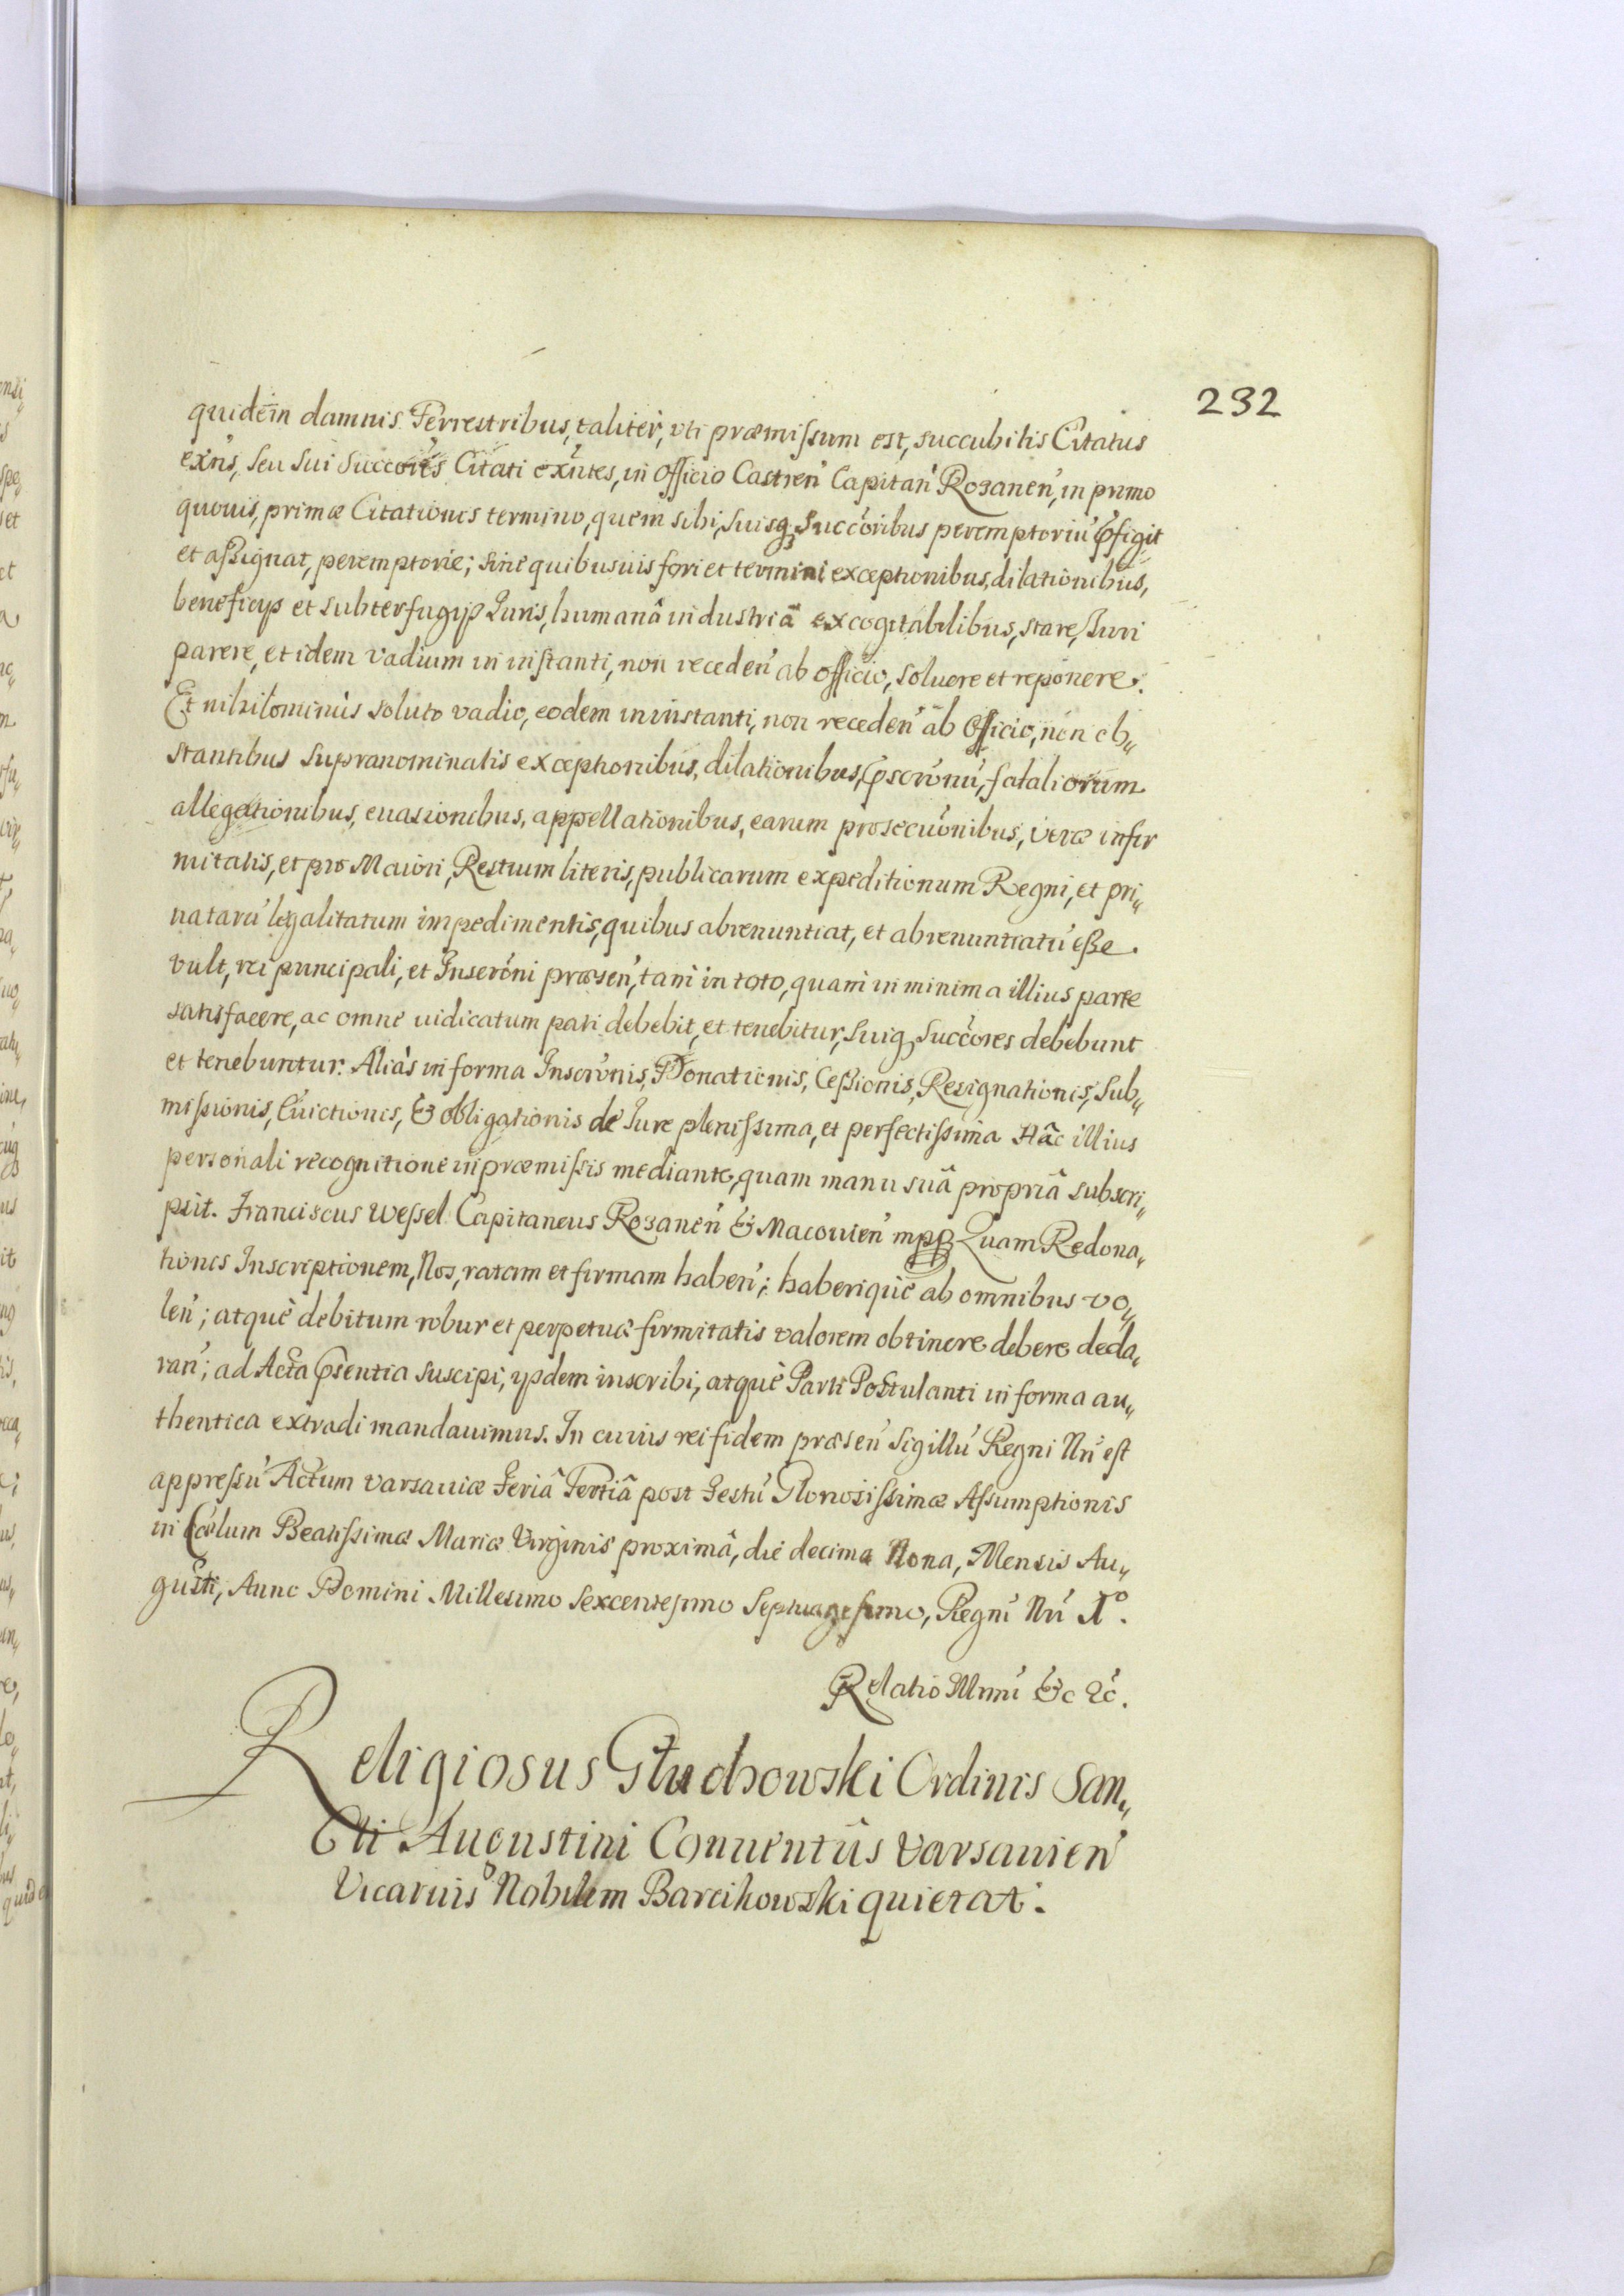 232
quidem damnis Terrestribus, taliter, vti præmissum est, succubitis Citatus
exns, seu sui Succores Citati exntes, in Officio Castren Capitan Rozanen, in primo
quouis, primæ Citationis termino, quem sibi, suisq Succoribus peremptoriu pfigit
et assignat, peremptorie; sine quibusuis fori et termini exceptionibus, dilationibus,
beneficys et subterfugys Iuris, humanâ industriâ excogitabilibus, stare, Iuri
parere, et idem vadium in instanti, non receden ab officio, soluere et reponere.
Et nihilominus soluto vadio, eodem in instanti, non receden ab Officio, non ob„
stantibus supranominatis exceptionibus, dilationibus, pscronu, fataliorum
allegationibus, euasionibus, appellationibus, earum prosecuonibus, veræ infir
mitatis, et pro Maiori, Restium literis, publicarum expeditionum Regni, et pri„
uataru legalitatum impedimentis, quibus abrenuntiat, et abrenuntiatu esse.
vult, rei principali, et Inscroni præsen, tam in toto, quam in minima illius parte
satisfacere, ac omne iudicatum pati debebit, et tenebitur, suiq Succores debebunt
et tenebuntur. Aliàs in forma Inscronis, Donationis, Cessionis, Resignationis, Sub„
missionis, Euictionis, & obligationis de Iure plenissima, et perfectissima Hâc illius
personali recognitione in præmissis mediante, quam manu suâ propriâ subscri„
psit. Franciscus Wessel Capitaneus Rozanen & Macouien mpp Quam Redona„
tionis Inscriptionem, Nos, ratam et firmam haben; haberique ab omnibus vo„
len; atque debitum robur et perpetuæ firmitatis valorem obtinere debere decla„
ran; ad Acta psentia suscipi, ysdem inscribi, atque Parti Postulanti in forma au„
thentica extradi mandauimus. In cuius rei fidem præsen Sigillu Regni Nri est
appressu Actum Varsauiæ Feriâ Tertiâ post Festu Gloriosissimæ Assumptionis
in Cælum Beatissimæ Mariæ Virginis proximâ, die decima Nona, Mensis Au„
gusti, Anno Domini Millesimo Sexcentesimo Septuagesimo, Regni Nri Io.
Relatio Illmi &c &c.
Religiosus Głuchowski Ordinis San„
cti Augustini Conuentûs Varsauien
Vicarius Nobilem Barcikowski quietat.